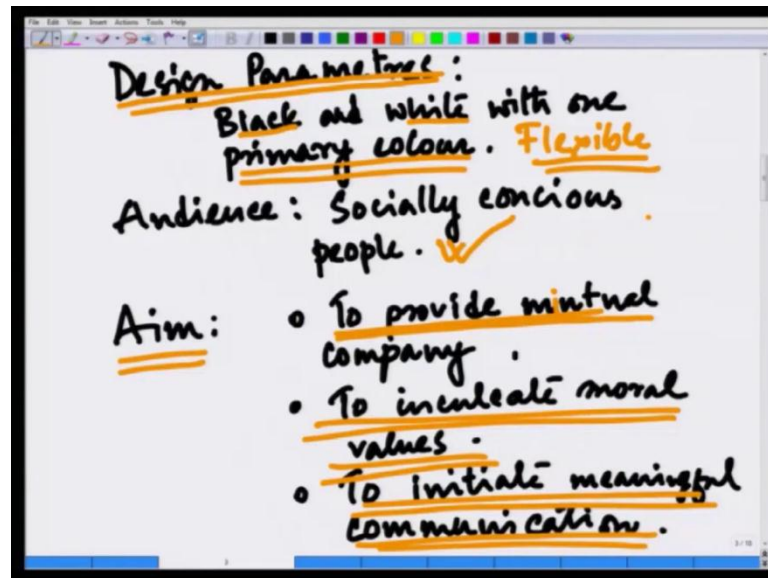 File Edit View Insert Actions Tools Help
Design Parametres:
Black and white with one
primary colour. Flexible
Audience: Socially concious
people.
Aim: • To provide mintual
company.
• To inculcate moral
values.
• To initiate meaningful
communication.
3
3/10